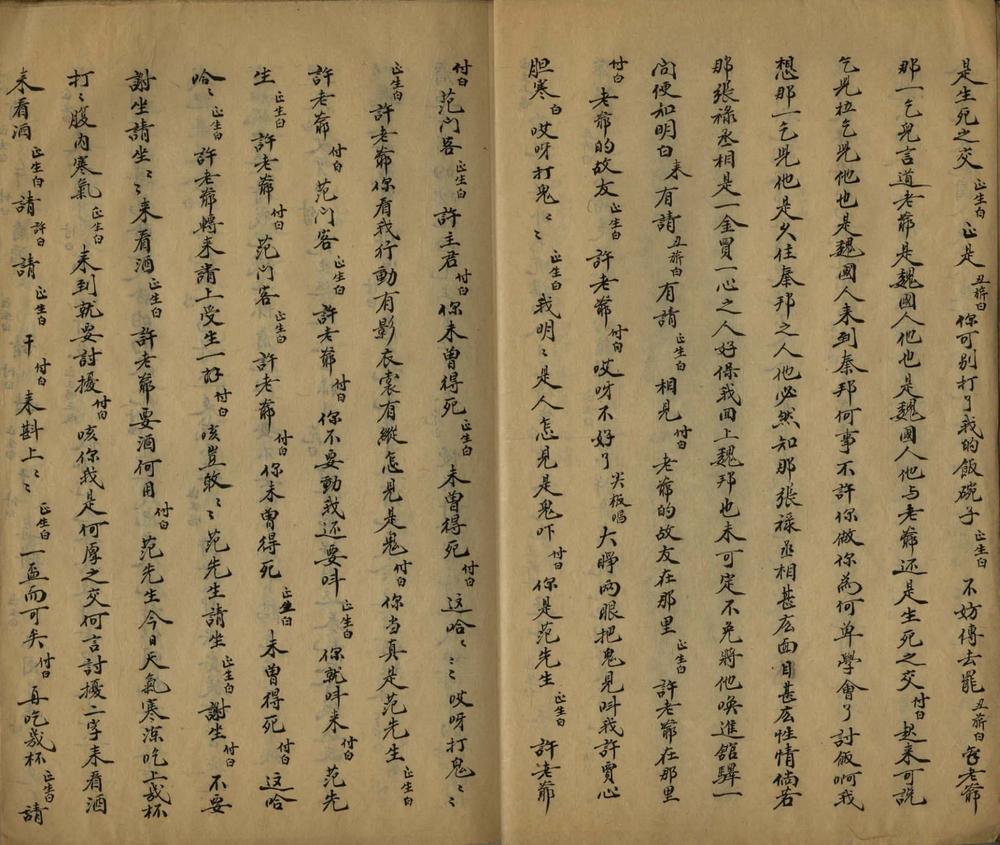 是生死之交 正生白 正是 丑旂白 你可别打了我的飯碗子 正生白 不妨傳去罷 丑旂白 老爺
那一乞兒言道老爺是魏國人他也是魏國人他与老爺还是生死之交 付白 起來可説
乞兒拉乞兒他也是魏國人来到秦邦何事不許你做你為何单學會了討飯啊我
想那一乞兒他是久住秦邦之人他必然知那張禄丞相甚庅面目甚庅性情倘若
那張禄丞相是一金買一心之人好保我回上魏邦也未可定不免將他喚進舘驛一
问便知明白 来有請 丑旂白 有請 正生白 相見 付白 老爺的故友在那里 正生白 許老爺在那里
付白 老爺的故友 正生白 許老爺 付白 哎呀不好了 尖板唱 大睜两眼把鬼見呌我許賈心
胆寒 白 哎呀打鬼〻〻 正生白 我明〻是人怎見是鬼吓 付白 你是范先生 正生白 許老爺
付白 范门客 正生白 許主君 付白 你未曾得死 正生白 未曾得死 付白 这哈〻〻〻哎呀打鬼〻〻
正生白 許老爺你看我行動有影衣裳有縱怎見是鬼 付白 你当真是范先生 正生白
許老爺 付白 范门客 正生白 許老爺 付白 你不要動我还要呌 正生白 你就呌来 付白 范先
生 正生白 許老爺 付白 范门客 正生白 許老爺 付白 你未曾得死 正生白 未曾得死 付白 这哈
哈〻 正生白 許老爺轉来請上受生一礼 付白 咳豈敢〻〻范先生請坐 正生白 謝坐 付白 不要
謝坐請坐〻〻来看酒 正生白 許老爺要酒何用 付白 范先生今日天氣寒凉吃上幾杯
打〻腹内寒氣 正生白 来到就要討擾 付白 咳你我是何厚之交何言討擾二字来看酒
来看酒 正生白 請 許白 請 正生白 干 付白 来斟上〻〻 正生白 一盃而可矣 付白 再吃幾杯 正生白 請